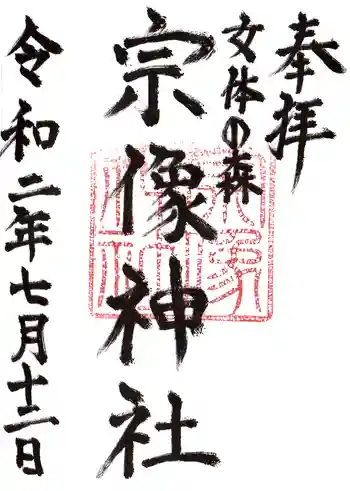 奉拝
女体の森
宗像神社
令和二年七月十二日